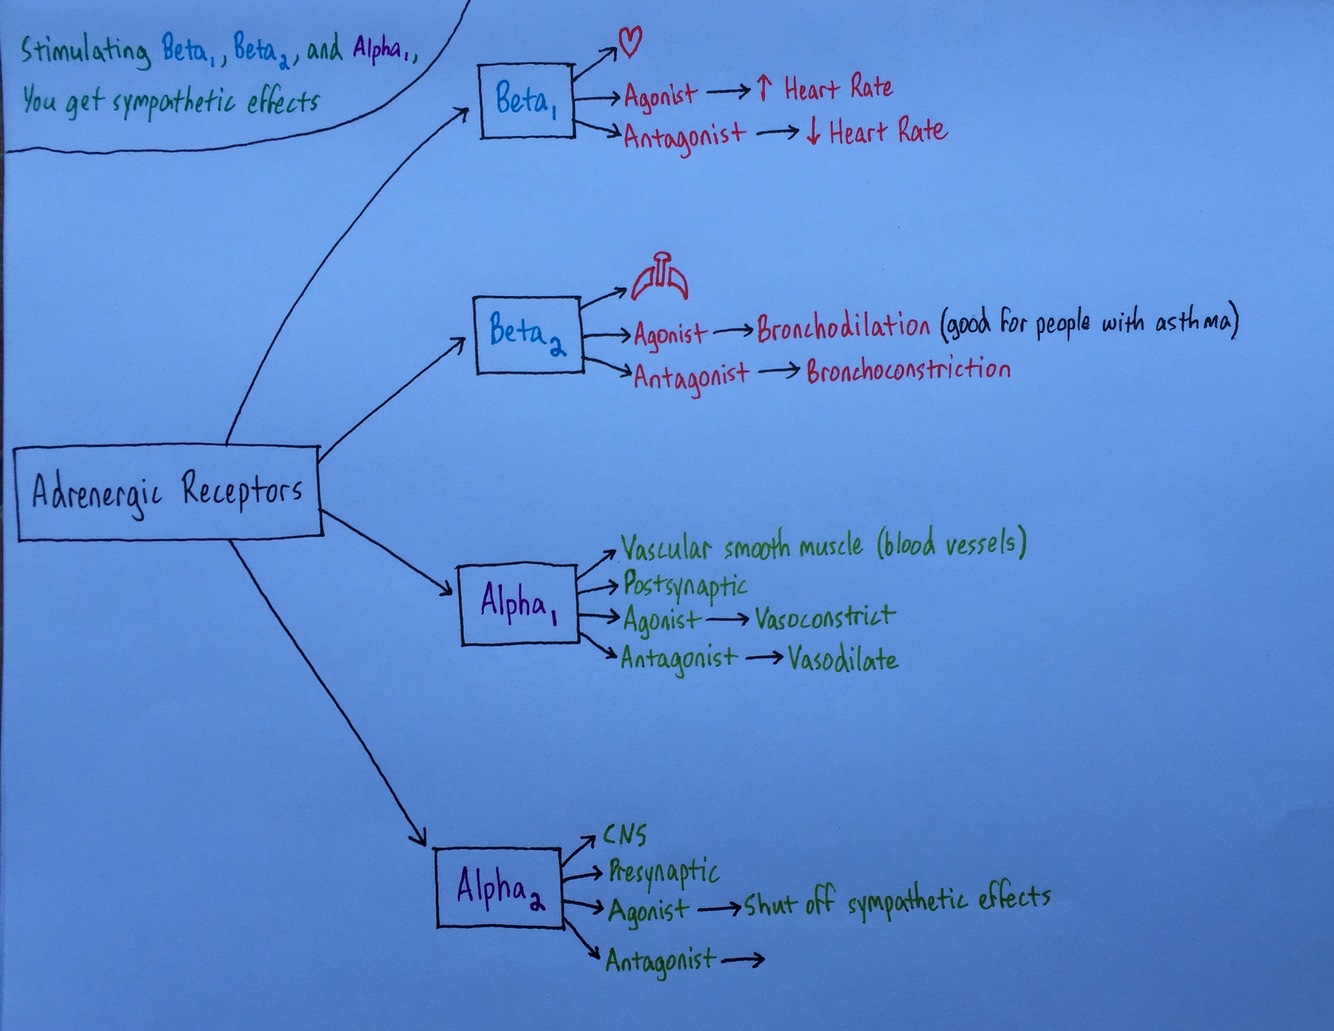 Stimulating Beta₁, Beta₂, and Alpha₁,
You get sympathetic effects
Beta₁
Agonist → ↑ Heart Rate
Antagonist → ↓ Heart Rate
Beta₂
Agonist → Bronchodilation (good for people with asthma)
Antagonist → Bronchoconstriction
Adrenergic Receptors
Alpha₁
Vascular smooth muscle (blood vessels)
Postsynaptic
Agonist → Vasoconstrict
Antagonist → Vasodilate
Alpha₂
CNS
Presynaptic
Agonist → Shut off sympathetic effects
Antagonist →